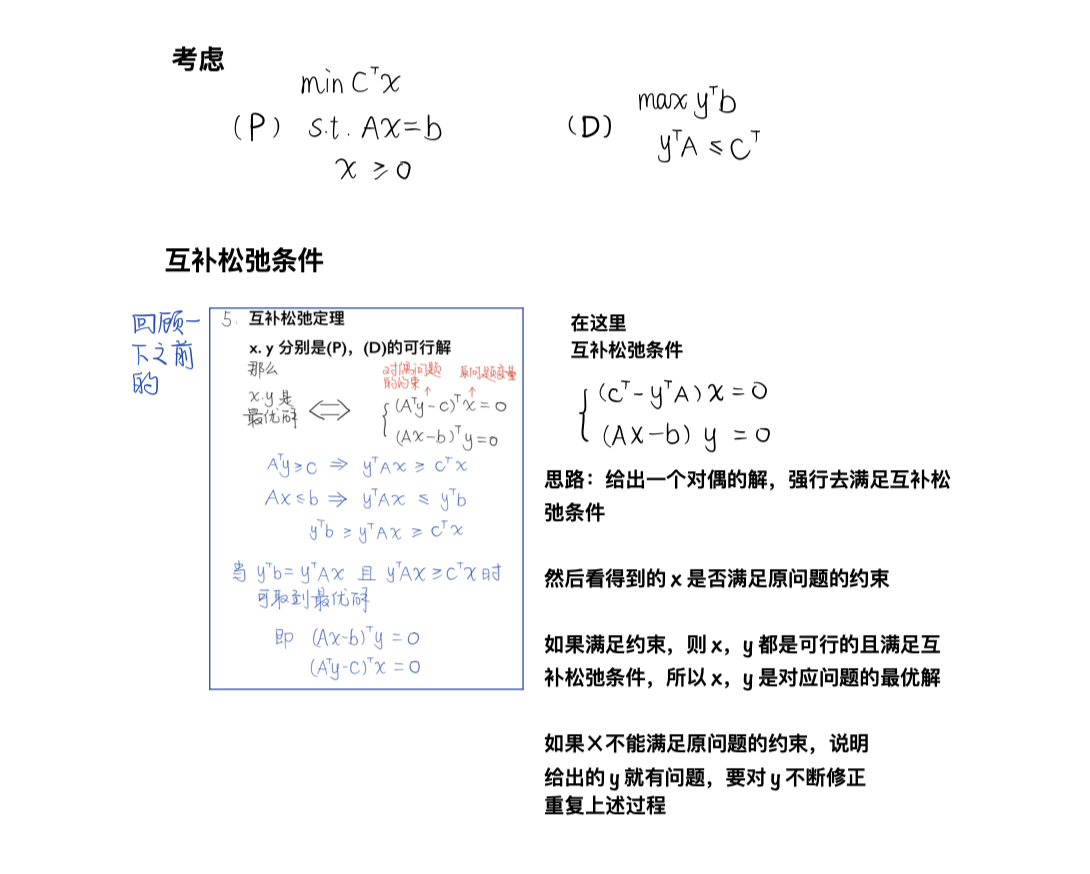 考虑
min Cᵀx
(P) s.t. Ax=b
x ≥ 0
max yᵀb
(D)
yᵀA ≤ Cᵀ
互补松弛条件
回顾一
下之前
的
5. 互补松弛定理
x. y 分别是(P)，(D)的可行解
那么
对偶问题
的约束
原问题变量
x.y 是
最优解
⟺
(Aᵀy-c)ᵀx=0
(Ax-b)ᵀy=0
Aᵀy≥c ⇒ yᵀAx ≥ cᵀx
Ax≤b ⇒ yᵀAx ≤ yᵀb
yᵀb ≥ yᵀAx ≥ cᵀx
当 yᵀb= yᵀAx 且 yᵀAx≥cᵀx时
可取到最优解
即 (Ax-b)ᵀy=0
(Aᵀy-c)ᵀx=0
在这里
互补松弛条件
(cᵀ-yᵀA)x=0
(Ax-b) y =0
思路：给出一个对偶的解，强行去满足互补松
弛条件
然后看得到的 x 是否满足原问题的约束
如果满足约束，则 x，y 都是可行的且满足互
补松弛条件，所以 x，y 是对应问题的最优解
如果X不能满足原问题的约束，说明
给出的 y 就有问题，要对 y 不断修正
重复上述过程